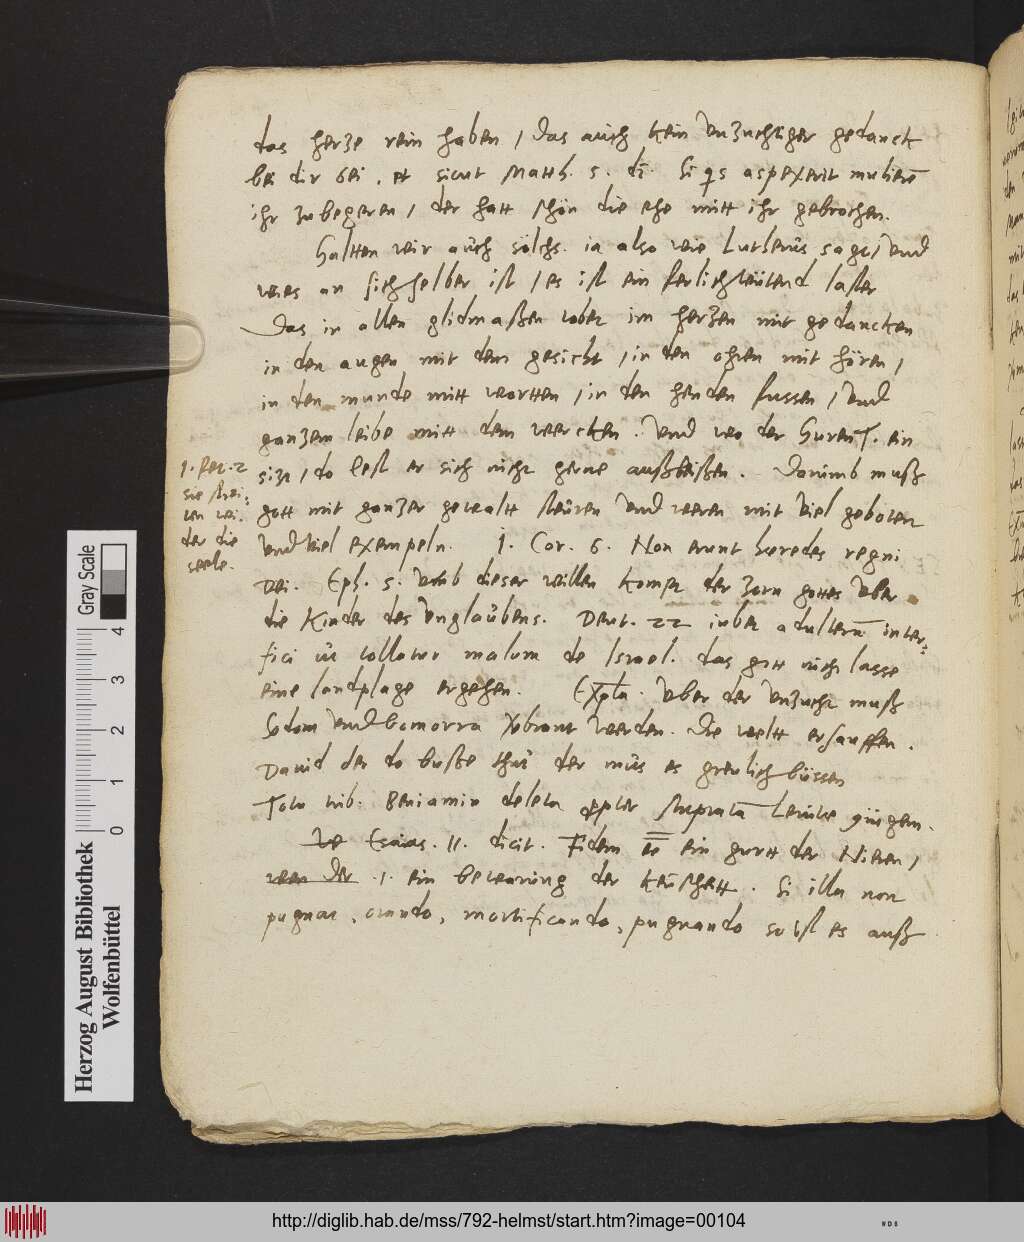 das herze rein haben / das auch kein unzuchtiger gedanck
bei dir sei . et sicut Matth. 5. di. Si q̄s aspexerit mulierē
ihr zu begeren / der hatt schon die ehe mitt ihr gebrochen.
Haltten wir auch solchs. ia also wie Lutherus sagt / und
wies an sich selber ist / es ist ein ferlich wütend laster
Das in allen glidmassen tobet im herzen mit gedancken
in den augen mit dem gesicht / in den ohren mit hören /
in den munde mitt wortten / in den henden fussen / und
ganzem leibe mitt dem wercken . Und wo der HurenT. ein
sizt / do lest er sich nicht gerne außbeißen . Darumb muß
gott mit ganzer gewaltt steüren und weren mit viel geboten
und viel exempeln. 1. Cor. 6. Non erunt hæredes regni
Dei. Eph. 5. Umb dieser willen kompt der zorn gottes uber
die Kinder des Unglaubens. Deut. 22 iubet adulterū inter-
fici ut tollatur malum de Israel. das gott nich lasse
eine landplage ergehen. Expla . Uber der Unzucht muß
Sodom und Gomorra vbrant werden . Die weltt ersauffen .
David der do busse thut der mus es greulich büssen
Tota trib: Beniamin deleta ꝓpter stupratā Levitæ
Esaias . 11. dicit . Fidem ee ein gurtt der Nieren /
wen der .i. ein bewarung der Keüschett . Si illa non
pugnat , orando , mortificando , pugnando so ist es auß
1. Pet. 2
sie strei-
ten wi-
der die
seele.
Herzog August Bibliothek
Wolfenbüttel
Gray Scale
0 1 2 3 4
http://diglib.hab.de/mss/792-helmst/start.htm?image=00104
WDB